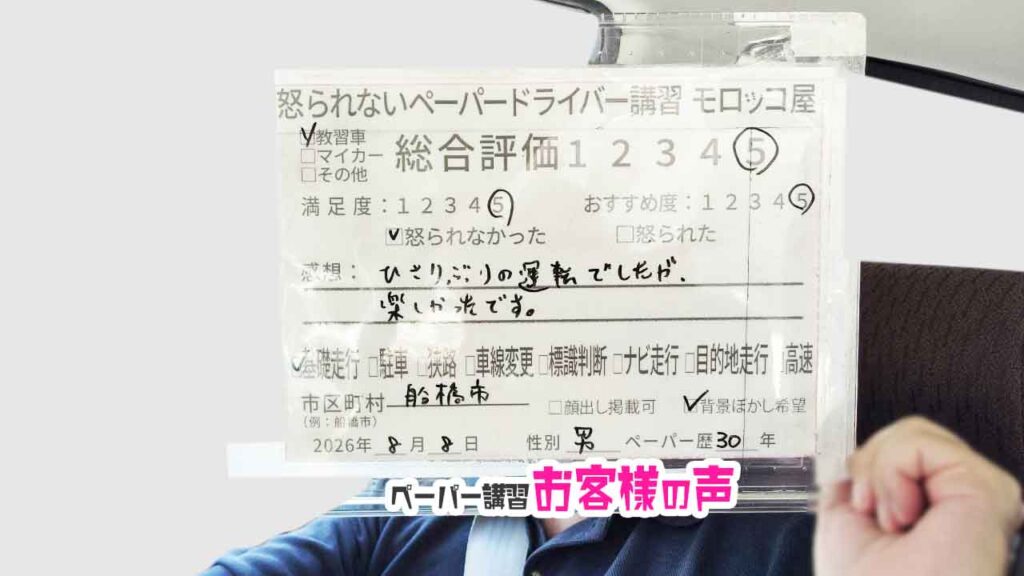 怒られないペーパードライバー講習 モロッコ屋
☑教習車
□マイカー
□その他
総合評価 1 2 3 4 5
満足度：1 2 3 4 5
おすすめ度：1 2 3 4 5
☑怒られなかった □怒られた
感想：ひさしぶりの運転でしたが、
楽しかったです。
☑基礎走行 □駐車 □狭路 □車線変更 □標識判断 □ナビ走行 □目的地走行 □高速
市区町村 船橋市
（例：船橋市）
□顔出し掲載可 ☑背景ぼかし希望
2026年 8月 8日 性別 男 ペーパー歴 30 年
ペーパー講習 お客様の声